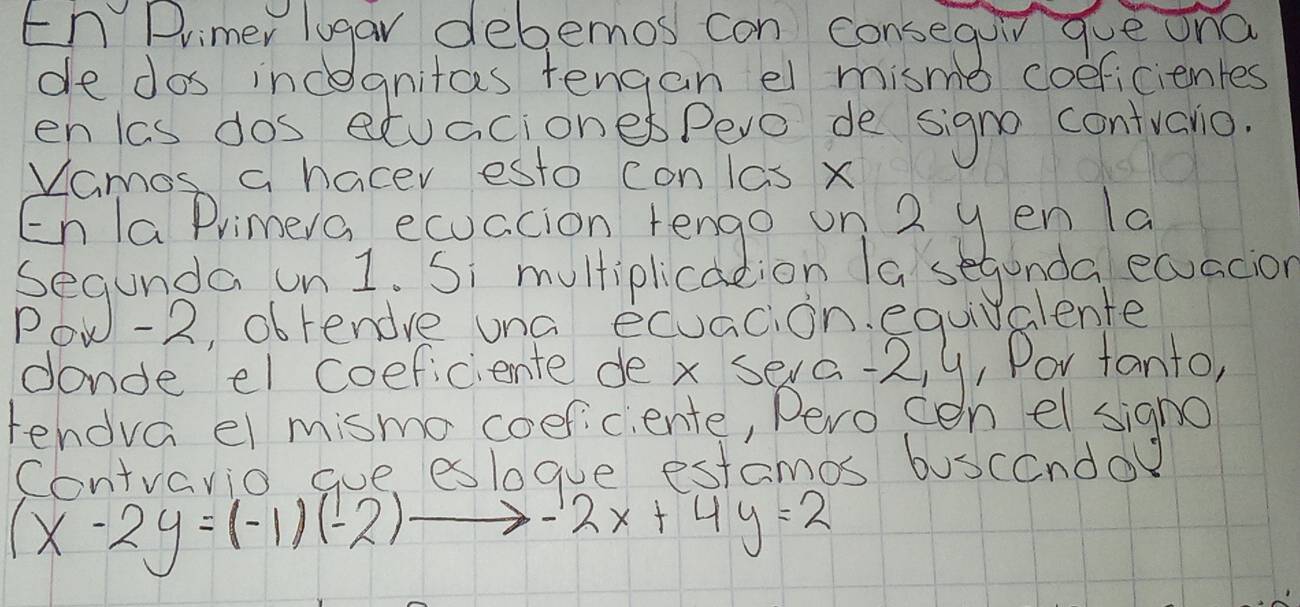 En Primer lugar debemos con conseguir que una
de dos incognitas tengan el mismo coeficientes
en las dos ecuaciones Pero de signo contrario.
Vamos a hacer esto con las x
En la Primera ecuacion tengo un 2 y en la
segunda un 1. Si multiplicacion la segunda ecuacion
Por -2, obtendre una ecuación.equivalente
donde el coeficiente de x sera -2, y, Por tanto,
tendra el mismo coeficiente, Pero con el signo
Contrario que es loque estamos buscando
(x - 2y = (-1)(-2) → -2x + 4y = 2